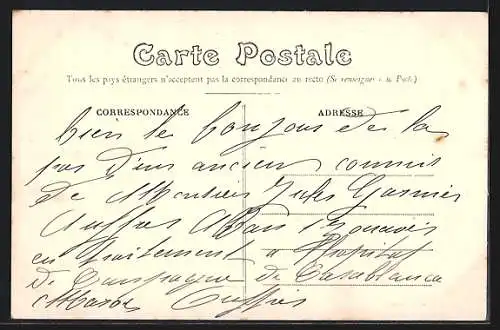 Carte Postale
Tous les pays étrangers n'acceptent pas la correspondance au recto (Se renseigner à la Poste)
CORRESPONDANCE ADRESSE
bien le bonjour de la
par d'un ancien commis
de Jules Garnier
Zouaves
en traitement a l'hopital
de Campagne de Casablanca
Maroc